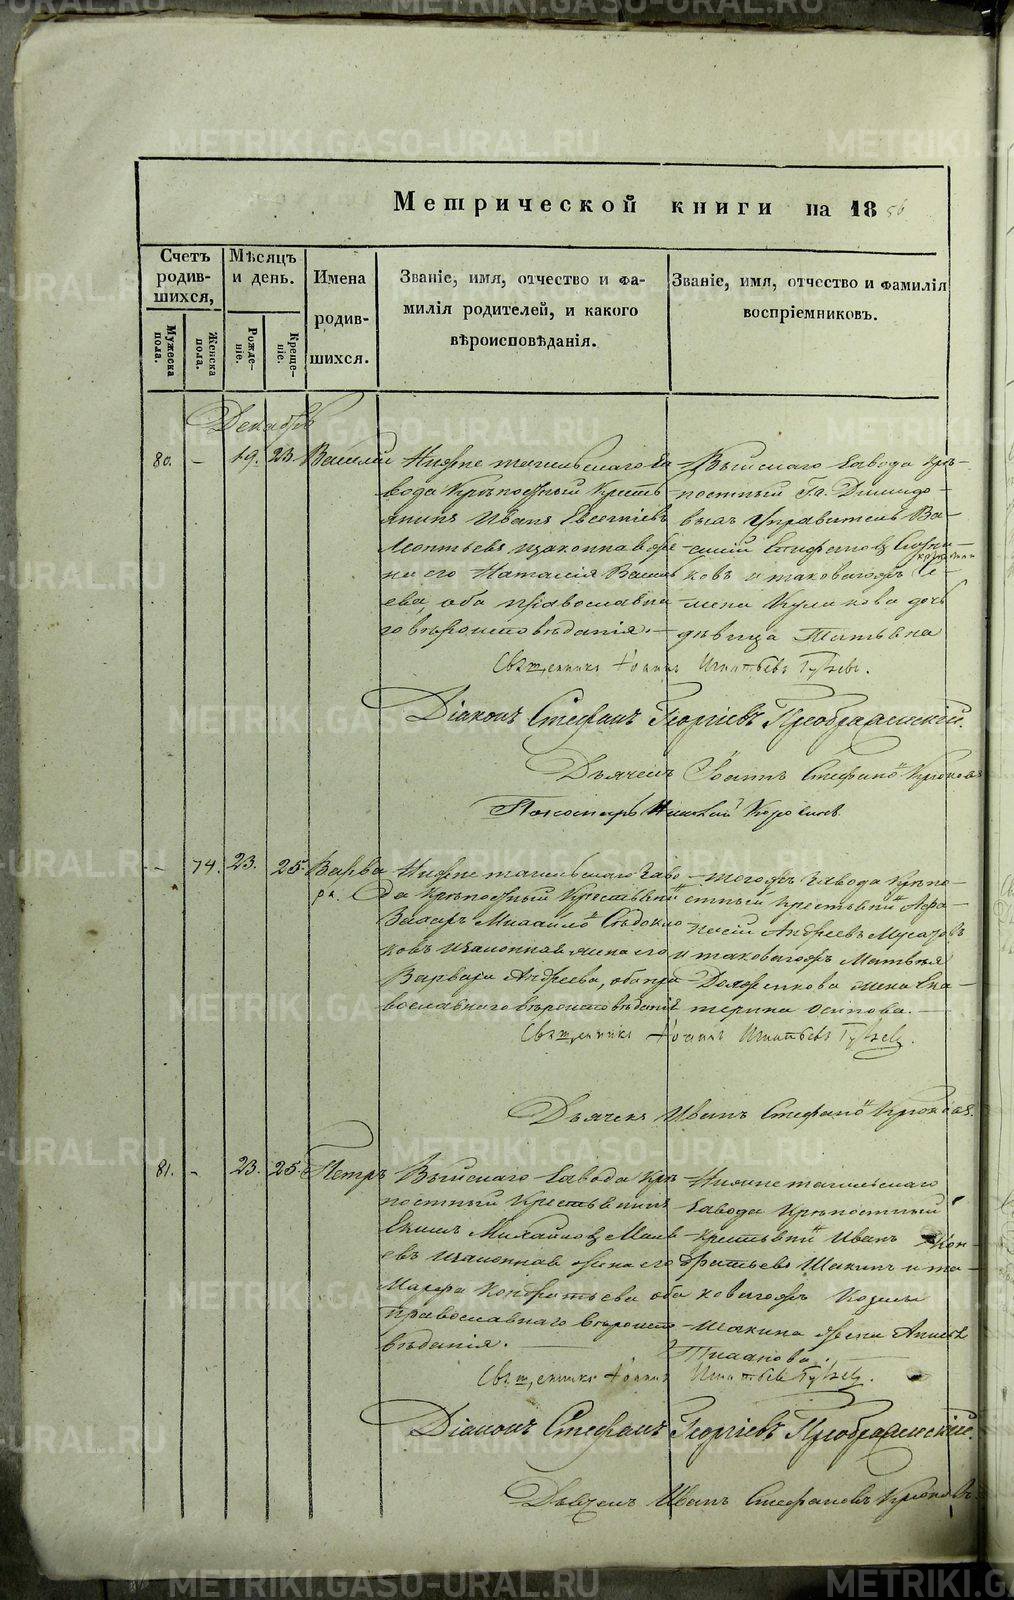 METRIKI.GASO-URAL.RU
Метрической книги на 1856
Счетъ родив-шихся,
Мѣсяцъ и день.
Имена родив-шихся.
Званіе, имя, отчество и фа-
милія родителей, и какого
вѣроисповѣданія.
Званіе, имя, отчество и фамилія
воспріемниковъ.
Мужеска пола.
Женска пола.
Рожде-ніе.
Креще-ніе.
Декабрь
80. - 19. 23. Василій
Нижнетагильскаго За-
вода Крѣпостный Кресть-
янинъ Иванъ Евсегніевъ
Леонтьевъ и законная же-
на его Наталія Василь-
ева, оба православна-
го вѣроисповѣданія.
Выйскаго Завода Крѣ-
постный Гд. Демидо-
выхъ Управитель Ва-
силій Епифановъ
ковъ и таковагожъ
Куликова дочь
дѣвица Татьяна
Священникъ Іоаннъ Игнатьевъ
Діаконъ Стефанъ Георгіевъ Преображенскій.
Дьячекъ Іоаннъ Стефановъ Крюковъ
Пономарь Николай
- 74. 23. 25. Варва-
ра.
Нижнетагильскаго Заво-
да Крѣпостный Крестьянинъ
Захаръ Михайловъ
ковъ и законная жена его
Варвара Андреева, оба пра-
вославнаго вѣроисповѣданія
тогожъ Завода Крѣпо-
стный Крестьянинъ Афа-
насій Андреевъ Мусатовъ
и таковагожъ Матвѣя
Долженкова жена Ека-
терина Осипова.
Священникъ Іоаннъ Игнатьевъ
Дьячекъ Иванъ Стефановъ Крюковъ.
81. - 23. 25. Петръ
Выйскаго Завода Крѣ-
постный Крестьянинъ
Екимъ Михайловъ
и законная жена его
Марфа Кондратьева оба
православнаго вѣроиспо-
вѣданія.
Нижнетагильскаго
Завода Крѣпостный
Крестьянинъ Иванъ Кон-
дратьевъ Шакинъ и та-
ковагожъ Козмы
Шакина жена
Священникъ Іоаннъ Игнатьевъ
Діаконъ Стефанъ Георгіевъ Преображенскій.
Дьячекъ Иванъ Стефановъ Крюковъ